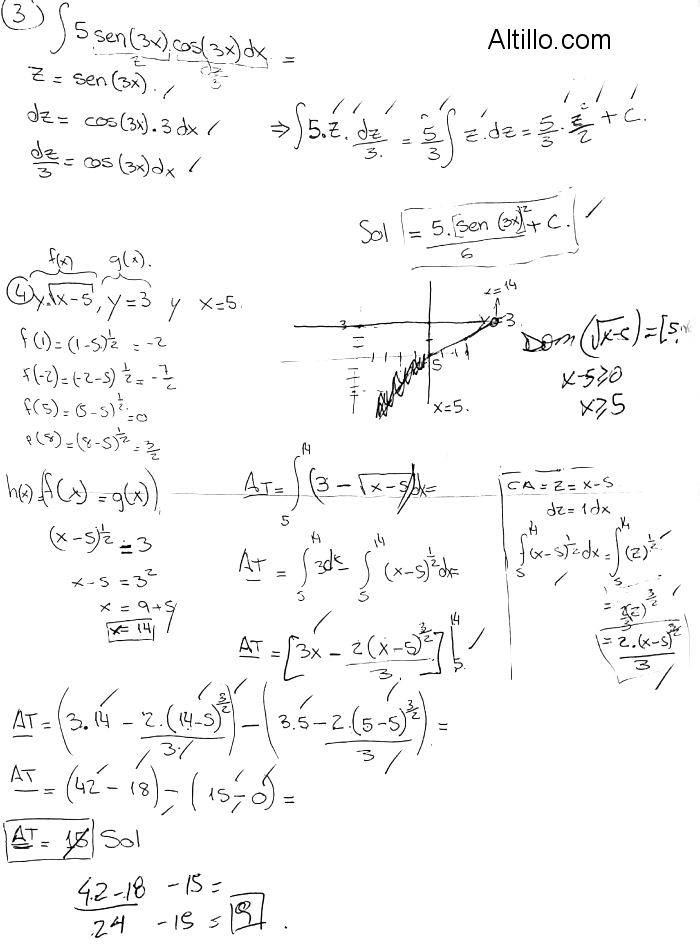 3) ∫ 5 sen(3x) cos(3x) dx =
Altillo.com
z
dz/3
z = sen(3x).
dz = cos(3x).3dx
dz/3 = cos(3x)dx
⇒ ∫ 5.z.dz/3 = 5/3 ∫ z.dz = 5/3 . z²/2 + C.
Sol = 5.[sen (3x)]²/6 + C.
f(x) g(x).
4 y √x-5, y=3 y x=5.
f(1)=(1-5)^1/2 = -2
f(-2)=(-2-5)^1/2 = -7/2
f(5)=(5-5)^1/2 = 0
f(8)=(8-5)^1/2 = 3/2
x=14
3
3.
5
x=5.
Dom (√x-5) = [5,
x-5≥0
x≥5
h(x) (f(x) = g(x))
(x-5)^1/2 = 3
x-5 = 3²
x = 9+5
x = 14
AT = ∫ 5 14 (3 - √x-5) dx =
AT = ∫ 5 14 3dx - ∫ 5 14 (x-5)^1/2 dx =
AT = [3x - 2(x-5)^3/2 / 3] | 14 5.
CA = z = x-5
dz = 1dx
∫ 5 14 (x-5)^1/2 dx = ∫ 5 14 (z)^1/2
= 2(z)^3/2 / 3
= 2.(x-5)^3/2 / 3
AT = (3.14 - 2.(14-5)^3/2 / 3) - (3.5 - 2.(5-5)^3/2 / 3) =
AT = (42 - 18) - (15-0) =
AT = 15 Sol
42-18 - 15 =
24 - 15 = 9.